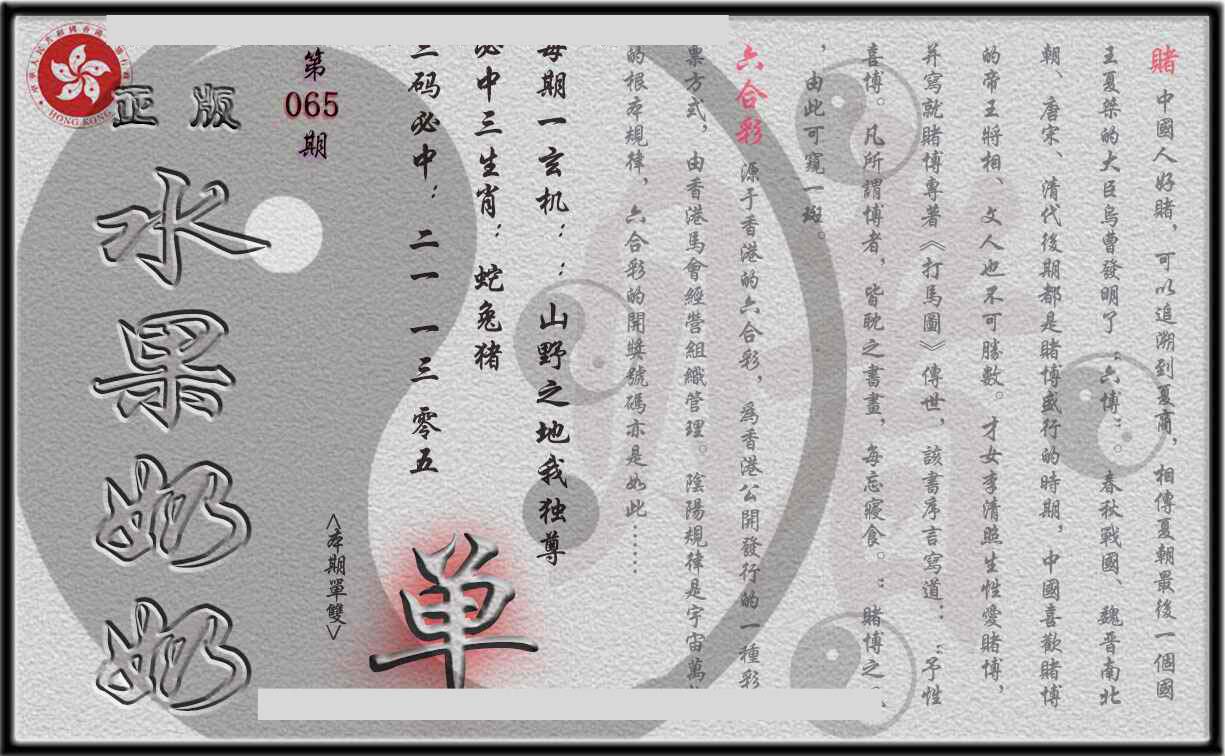 賭 中國人好賭，可以追溯到夏商，相傳夏朝最後一個國
王夏桀的大臣烏曹發明了“六博”。春秋戰國、魏晉南北
朝、唐宋、清代後期都是賭博盛行的時期，中國喜歡賭博
的帝王將相、文人也不可勝數。才女李清照生性愛賭博，
并寫就賭博專著《打馬圖》傳世，該書序言寫道：“予性
喜博。凡所謂博者，皆耽之書畫，每忘寢食。”賭博之
，由此可窺一斑。
六合彩 源于香港的六合彩，為香港公開發行的一種彩
票方式，由香港馬會經營組織管理。陰陽規律是宇宙萬
的根本規律，六合彩的開獎號碼亦是如此……
每期一玄机：：山野之地我独尊
必中三生肖：蛇兔猪
三码必中：二一 一三 零五
单
<本期單雙>
第
065
期
正版
水果奶奶
HONG KONG